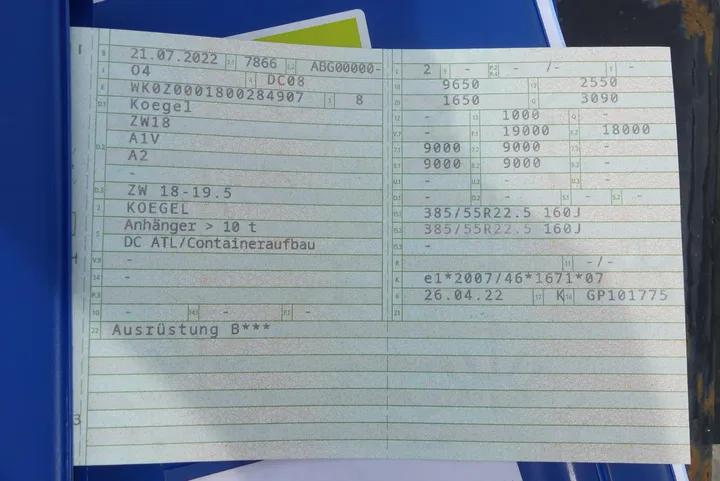 B 21.07.2022 2.1 7866 2.2 ABG00000-
J 04 4 DC08
E WK0Z0001800284907 3 8
D.1 Koegel
ZW18
D.2 A1V
A2
-
D.3 ZW 18-19.5
2 KOEGEL
5 Anhänger > 10 t
DC ATL/Containeraufbau
V.9 -
14 -
P.3
10 - 14.1 - P.1 -
22 Ausrüstung B***
L 2 9 - P.2 P.4 - /- T -
18 9650 19 2550
20 1650 G 3090
12 - 13 1000 Q -
V.7 - F.1 19000 F.2 18000
7.1 9000 7.2 9000 7.3 -
8.1 9000 8.2 9000 8.3 -
U.1 - U.2 - U.3 -
O.1 - O.2 - S.1 - S.2 -
15.1 385/55R22.5 160J
15.2 385/55R22.5 160J
15.3 -
R 11 -/-
K e1*2007/46*1671*07
6 26.04.22 17 K 16 GP101775
21